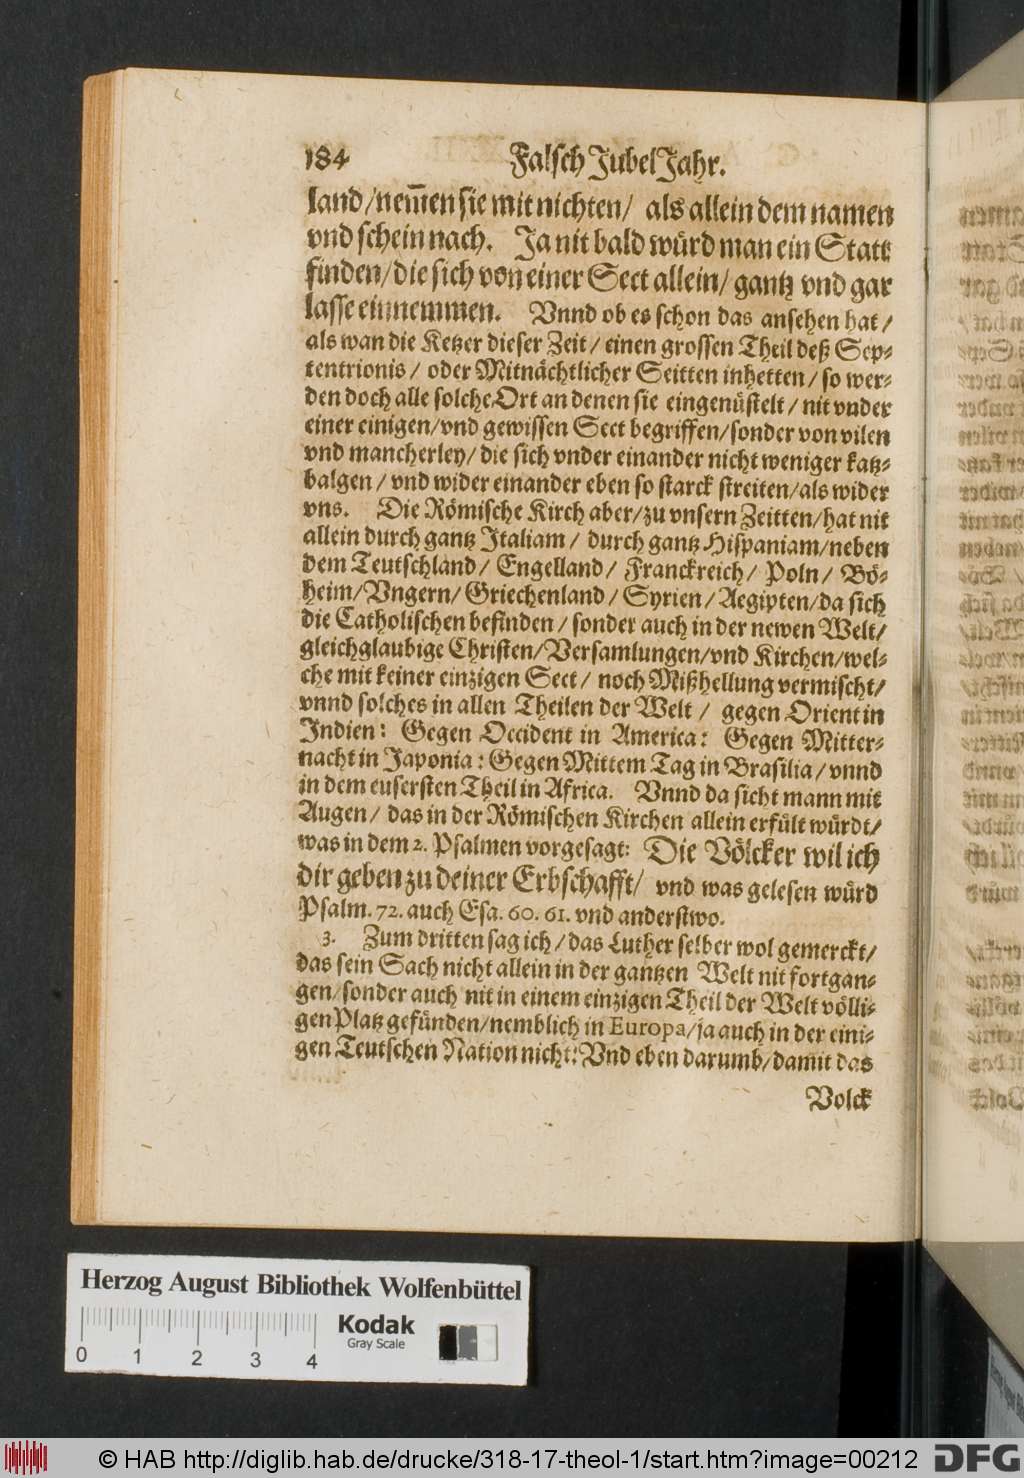 184 Falsch JubelJahr.
land/nem̃en sie mit nichten/ als allein dem namen
vnd schein nach. Ja nit bald würd man ein Statt
finden/die sich von einer Sect allein/ gantz vnd gar
lasse einnemmen. Vnnd ob es schon das ansehen hat/
als wan die Ketzer dieser Zeit/ einen grossen Theil deß Sep-
tentrionis/ oder Mitnächtlicher Seitten inhetten/ so wer-
den doch alle solche Ort an denen sie eingenüstelt/ nit vnder
einer einigen/vnd gewissen Sect begriffen/sonder von vilen
vnd mancherley/ die sich vnder einander nicht weniger katz-
balgen/ vnd wider einander eben so starck streiten/als wider
vns. Die Römische Kirch aber/zu vnsern Zeitten/hat nit
allein durch gantz Italiam/ durch gantz Hispaniam/neben
dem Teutschland/ Engelland/ Franckreich/ Poln/ Bö-
heim/Vngern/ Griechenland/ Syrien/ Aegipten/da sich
die Catholischen befinden/ sonder auch in der newen Welt/
gleichglaubige Christen/Versamlungen/vnd Kirchen/wel-
che mit keiner einzigen Sect/ noch Mißhellung vermischt/
vnnd solches in allen Theilen der Welt/ gegen Orient in
Indien: Gegen Occident in America: Gegen Mitter-
nacht in Japonia: Gegen Mittem Tag in Brasilia/ vnnd
in dem eusersten Theil in Africa. Vnnd da sicht mann mit
Augen/ das in der Römischen Kirchen allein erfült würdt/
was in dem 2. Psalmen vorgesagt: Die Völcker wil ich
dir geben zu deiner Erbschafft/ vnd was gelesen würd
Psalm. 72. auch Esa. 60. 61. vnd anderstwo.
3. Zum dritten sag ich/ das Luther selber wol gemerckt/
das sein Sach nicht allein in der gantzen Welt nit fortgan-
gen/sonder auch nit in einem einzigen Theil der Welt völli-
gen Platz gefünden/nemblich in Europa/ja auch in der eini-
gen Teutschen Nation nicht: Vnd eben darumb/damit das
Volck
Herzog August Bibliothek Wolfenbüttel
Kodak
Gray Scale
0 1 2 3 4
© HAB http://diglib.hab.de/drucke/318-17-theol-1/start.htm?image=00212
DFG